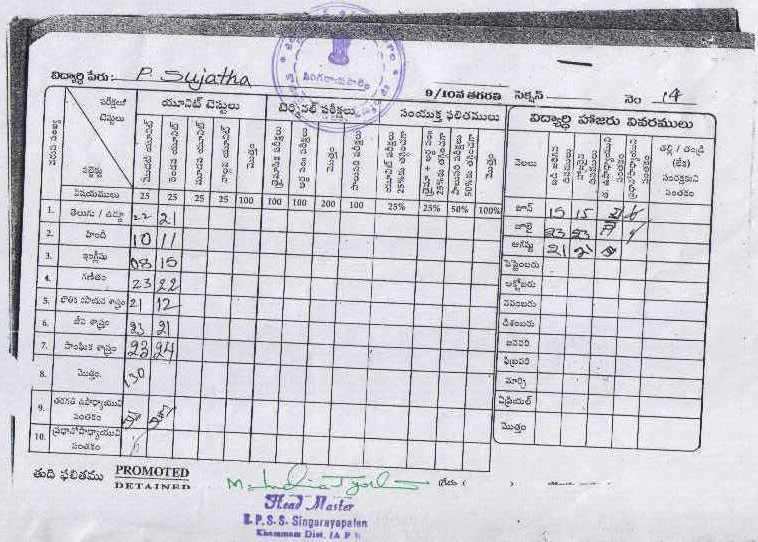 సింగరాయపాలెం
విద్యార్థి పేరు:- P. Sujatha 9/10వ తరగతి సెక్షన్ నెం 14
వరుస సంఖ్య పరీక్షలో టెస్టులు సబ్జెక్టు యూనిట్ టెస్టులు టెర్మినల్ పరీక్షలు సంయుక్త ఫలితములు విద్యార్థి హాజరు వివరములు
మొదటి యూనిట్ రెండవ యూనిట్ మూడవ యూనిట్ నాల్గవ యూనిట్ మొత్తం మొత్తం 25%కు తగ్గించగా 25%కు తగ్గించగా 50%కు తగ్గించగా మొత్తం నెలలు
విషయములు 25 25 25 25 100 100 100 200 100 25% 25% 50% 100%
1. తెలుగు / ఉర్దూ 22 21 జూన్ 15 15
2. హిందీ 10 11 జూలై 23 23
3. ఇంగ్లీషు 08 15 ఆగష్టు 21 21
4. గణితం 23 22 సెప్టెంబరు
5. భౌతిక రసాయన శాస్త్రం 21 12 అక్టోబరు
6. జీవ శాస్త్రం 23 21 నవంబరు
7. సాంఘిక శాస్త్రం 23 24 డిశంబరు
8. మొత్తం 130 జనవరి
ఫిబ్రవరి
మార్చి
9. తరగతి ఉపాధ్యాయుని సంతకం ఏప్రియల్
10. ప్రధానోపాధ్యాయుని సంతకం మొత్తం
తుది ఫలితము PROMOTED గ్రేడు ( )
DETAINED
Head Master
S. P. S. S. Singarayapalem
Khammam Dist. (A P)